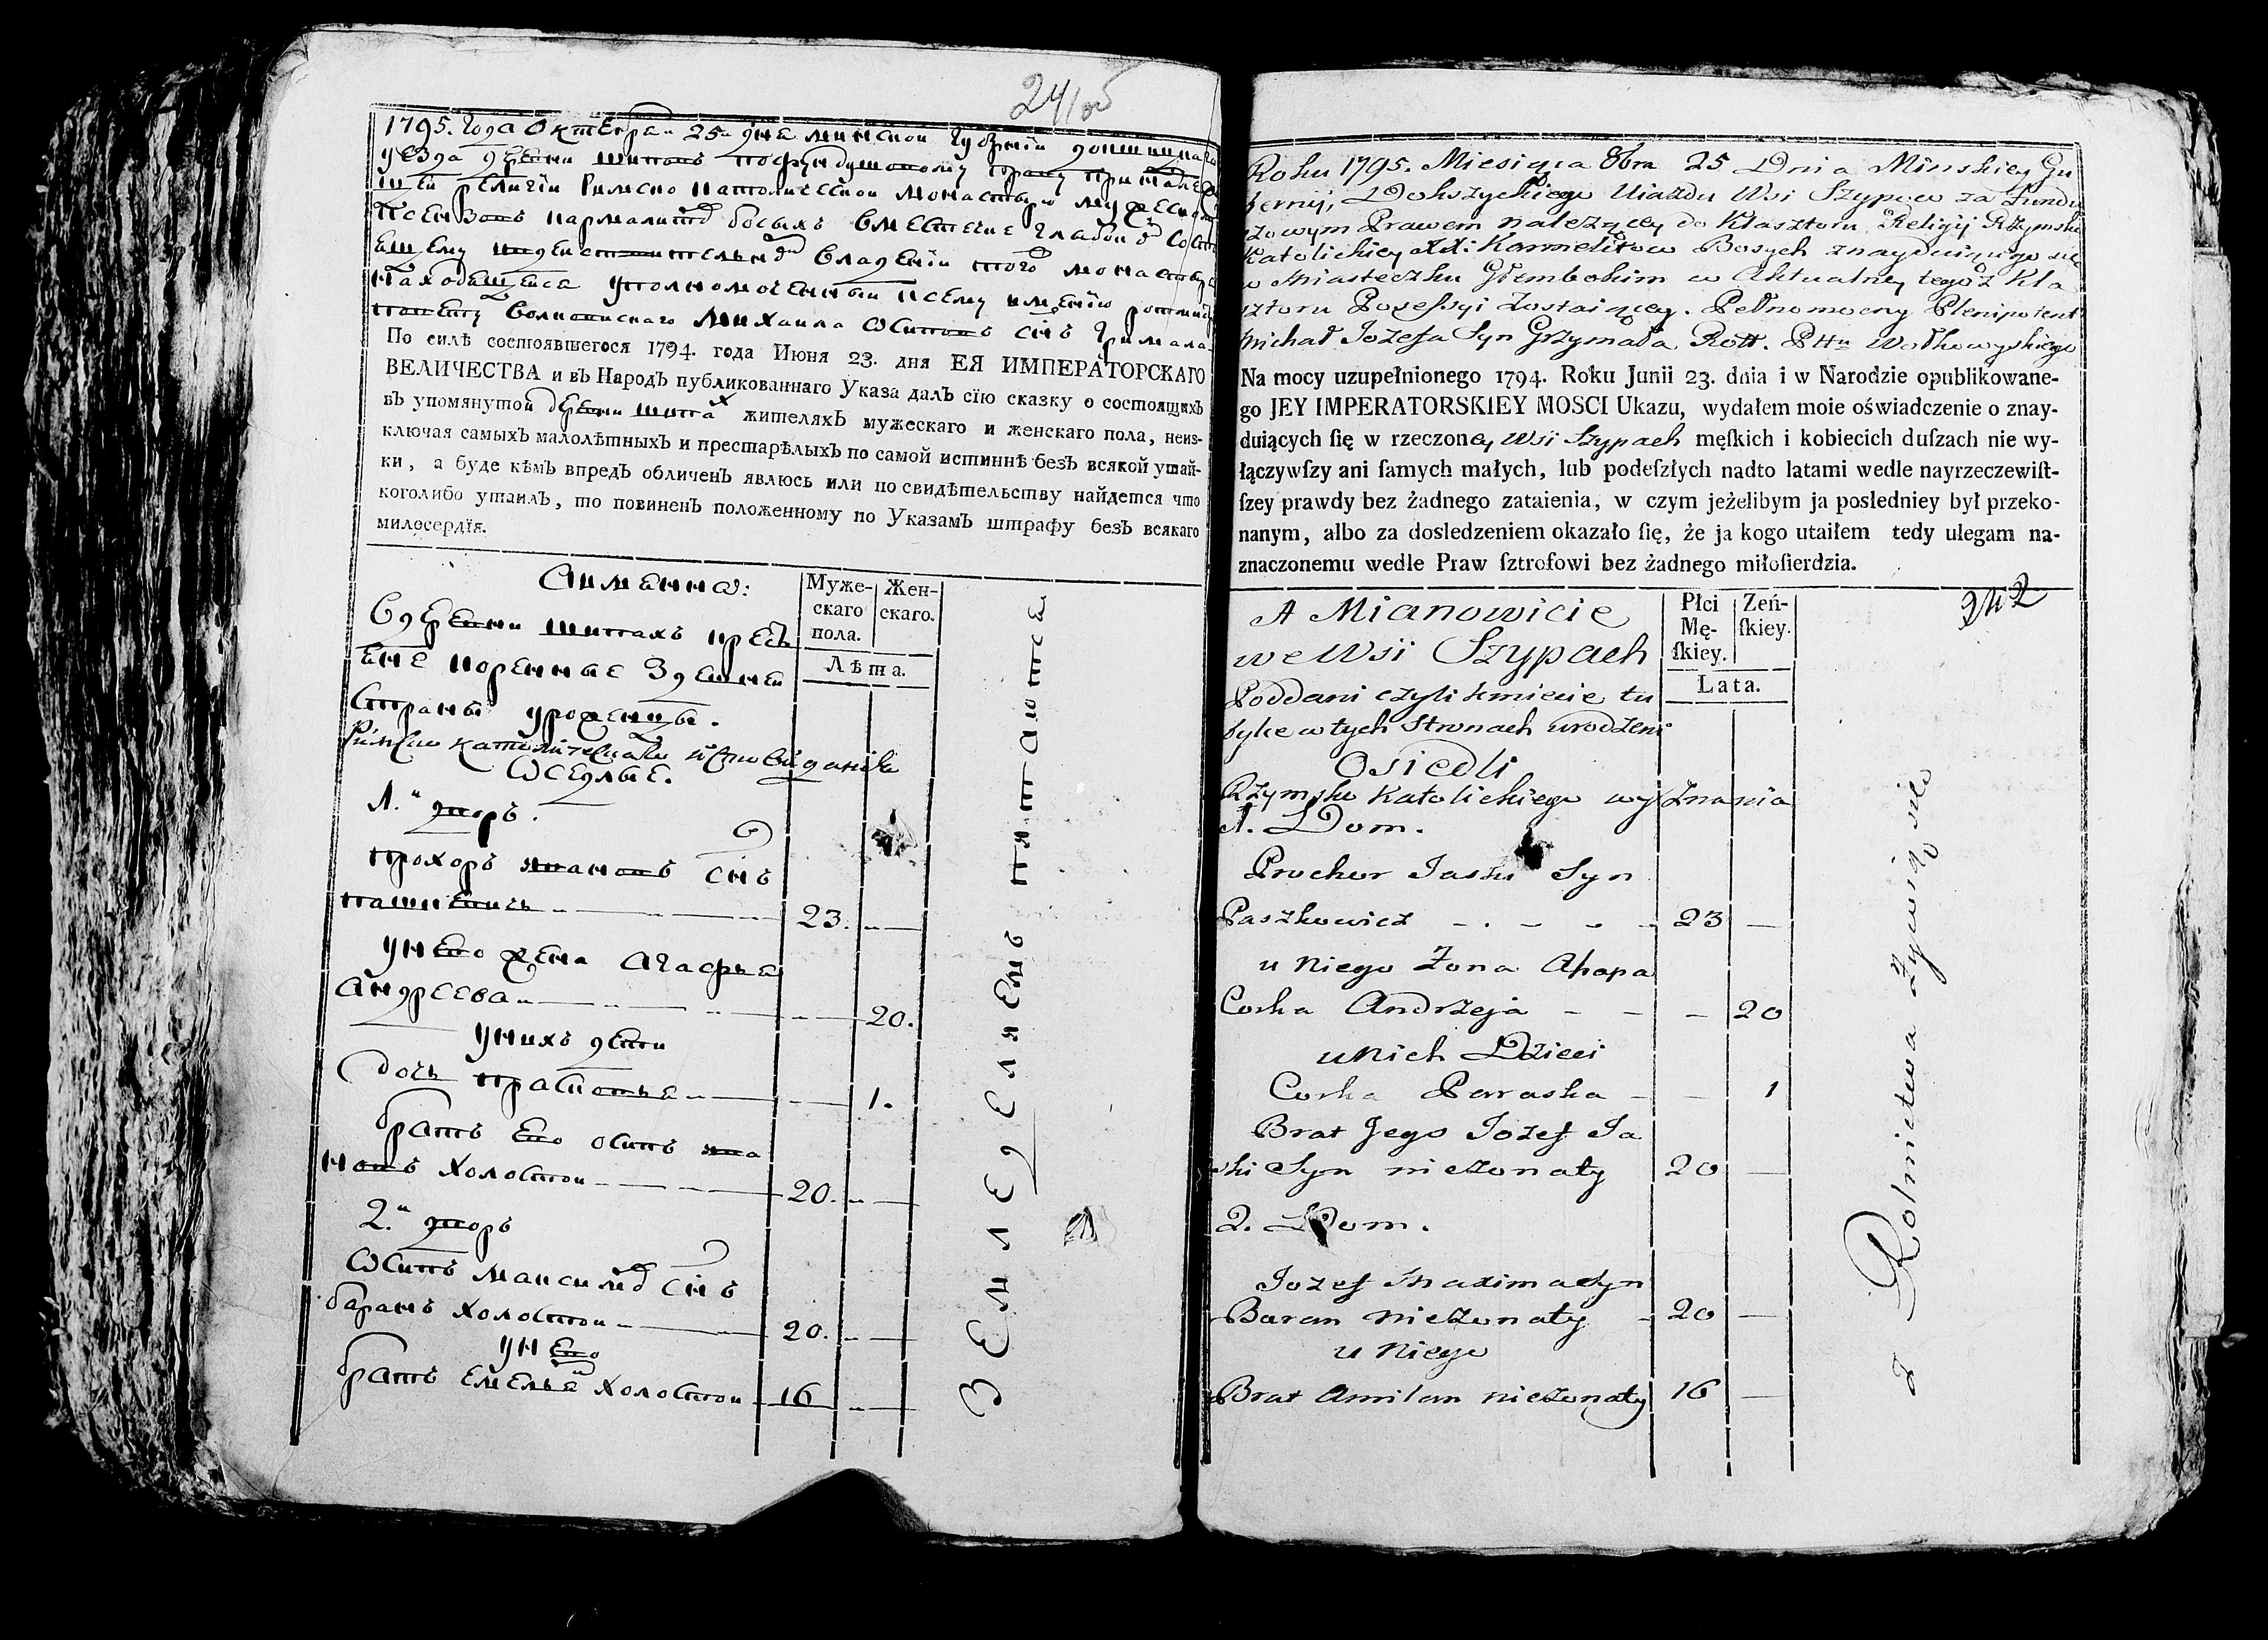 241об
1795. года Октября 25 дня минской губернїи докшицкаго
уезда деревни шиповъ пофундушовому праву принадле
щей религїи Римско католической монастырю мужеско
ксендзовъ кармалитовъ босыхъ вместечке глубокомъ состо
ящему вдействителномъ владенїи того монастыря
находящейся уполномоченный ксему имению ротмистръ
повету волковискаго Михаила Осиповъ снъ Гримала
По силѣ состоявшегося 1794. года Июня 23. дня ЕЯ ИМПЕРАТОРСКАГО
ВЕЛИЧЕСТВА и въ Народъ публикованнаго Указа далъ сїю сказку о состоящихъ
въ упомянутой деревни шипах жителяхъ мужескаго и женскаго пола, неиз-
ключая самыхъ малолѣтныхъ и престарѣлыхъ по самой истиннѣ безъ всякой утай-
ки, а буде кѣмъ впредъ обличенъ явлюсь или по свидѣтельству найдется что
коголибо утаилъ, то повиненъ положенному по Указамъ штрафу безъ всякаго
милосердїя.
Аимянно:
Вдеревни Шипахъ кресть
яне коренные Здешней
Страны уроженцы.
Римско католическаго исповедания
Оседлые.
Муже-
скаго
пола.
Жен-
скаго.
Лѣта.
1.й дворъ.
прохоръ ивановъ снъ
пашкевичь 23.
унево жена агафья
андреева 20.
унихъ дети
дочь прасковья 1.
братъ ево осипъ ива
новъ холостои 20.
2.й дворъ
Осипъ максимовъ снъ
баранъ холостои 20.
унево
братъ емельянъ холостои 16
Земледелиемъ питаются
Roku 1795. Miesiąca 8bra 25 Dnia Minskiey Gu
bernij, Dokszyckiego Uiazdu Wsi Szypow za Fundu
szowym Prawem należącey do Klasztoru Religij Rzymsko
Katolickiey XX: Karmelitow Bosych znayduiącego się
w Miasteczku Głembokim w Aktualney tegoż Kla
sztoru Posessyi zostaiącey. Pełnomocny Plenipotent
Michał Jozefa Syn Grzymała Rott. Pttu Wołkowyskiego
Na mocy uzupełnionego 1794. Roku Junii 23. dnia i w Narodzie opublikowane-
go JEY IMPERATORSKIEY MOSCI Ukazu, wydałem moie oświadczenie o znay-
duiących ſię w rzeczoney Wsi Szypach męſkich i kobiecich duſzach nie wy-
łączywſzy ani ſamych małych, lub podeſzłych nadto latami wedle nayrzeczewiſt-
ſzey prawdy bez żadnego zataienia, w czym jeżelibym ja posledniey był przeko-
nanym, albo za dosledzeniem okazało ſię, że ja kogo utaiłem tedy ulegam na-
znaczonemu wedle Praw ſztrofowi bez żadnego miłoſierdzia.
242
A Mianowicie
we Wsi Szypach
Poddani czyli kmiecie tu
tylko w tych Stronach urodzeni
Osiedli
Rzymsko Katolickiego wyznania
Płci
Mę-
ſkiey.
Zeń-
ſkiey.
Lata.
1. Dom.
Prochor Jaśku Syn
Paszkowicz 23
u Niego Żona Ahapa
Corka Andrzeja 20
u Nich Dzieci
Corka Paraska 1
Brat Jego Jozef Ja
ski Syn nieżonaty 20
2. Dom.
Jozef Maxima Syn
Baran nieżonaty 20
u Niego
Brat Amilan nieżonaty 16
z Rolnictwa żywią się